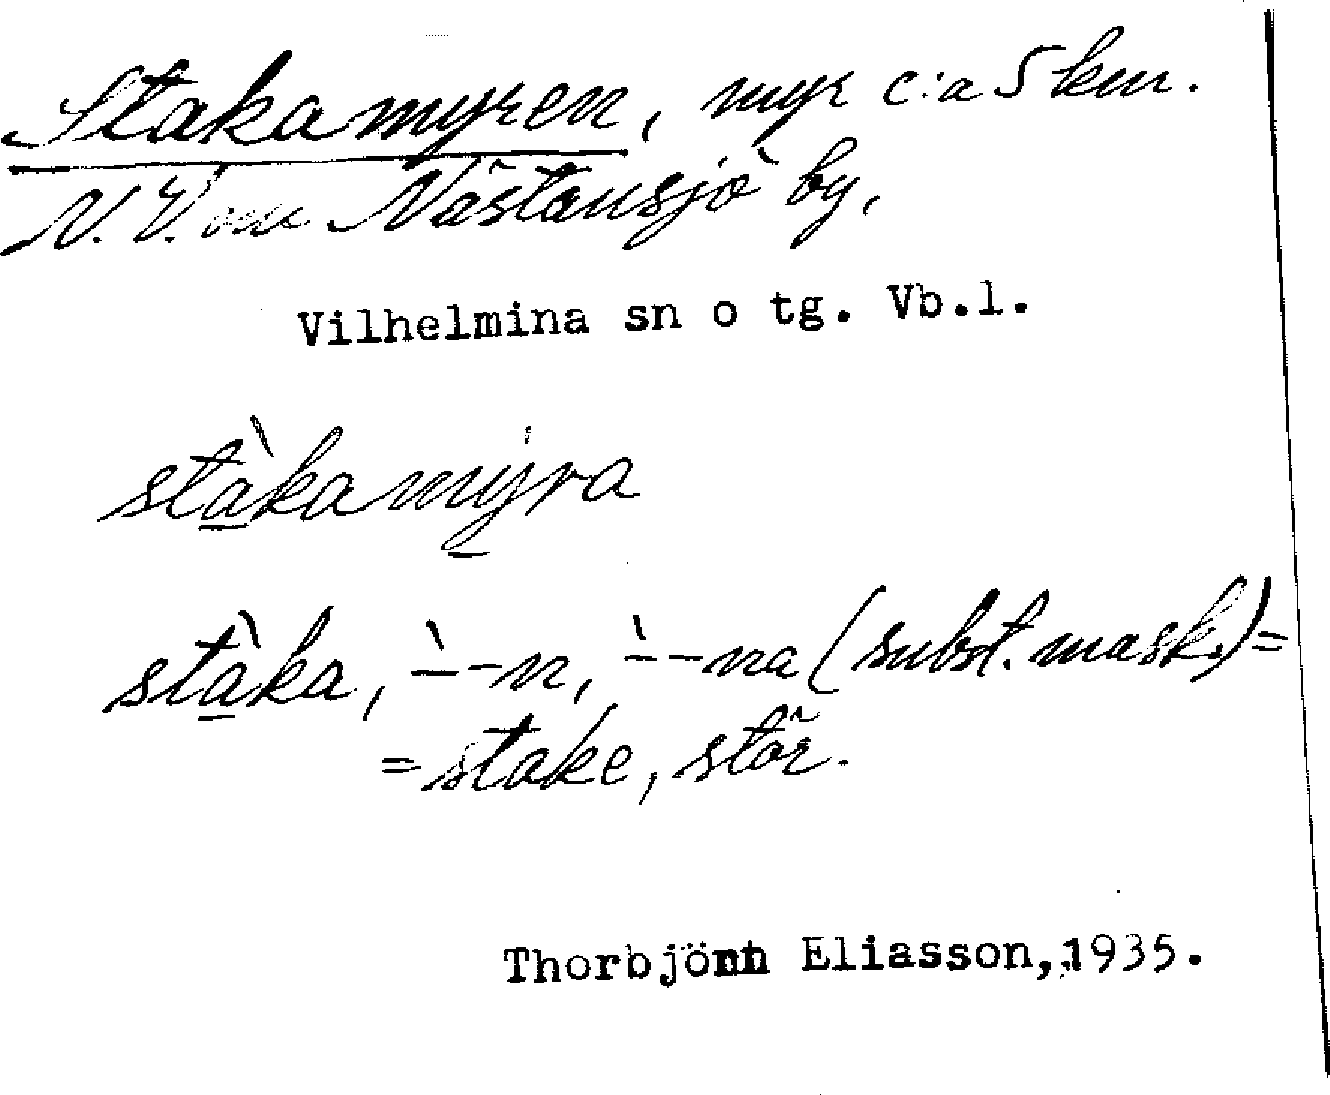 Stakamyren, myr c:a 5 km.
N.V. om Nästansjö by,
Vilhelmina sn o tg. Vb.l.
stàkamýra
stàka, `--n, `--na (subst. mask.) =
= stake, stör.
Thorbjörn Eliasson, 1935.